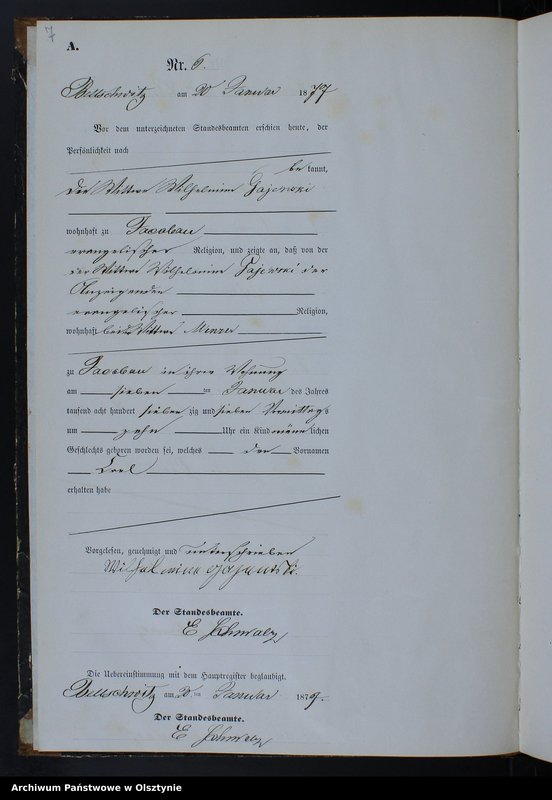 7
A.
Nr. 6.
Bellschwitz am 20 Januar 1877
Vor dem unterzeichneten Standesbeamten erschien heute, der
Persönlichkeit nach
bekannt,
die Wittwe Wilhelmine Gajewski
wohnhaft zu Jacobau
evangelischer Religion, und zeigte an, daß von der
der Wittwe Wilhelmine Gajewski der
Anzeigenden
evangelischer Religion,
wohnhaft bei Wittwe Menzer
zu Jacobau in ihrer Wohnung
am sieben ten Januar des Jahres
tausend acht hundert sieben zig und sieben Vormittags
um zehn Uhr ein Kind männlichen
Geschlechts geboren worden sei, welches den Vornamen
Carl
erhalten habe
Vorgelesen, genehmigt und unterschrieben
Wilhelmine
Der Standesbeamte.
E Schwalz
Die Uebereinstimmung mit dem Hauptregister beglaubigt.
Bellschwitz am 20 ten Januar 1877.
Der Standesbeamte.
E Schwalz
Archiwum Państwowe w Olsztynie